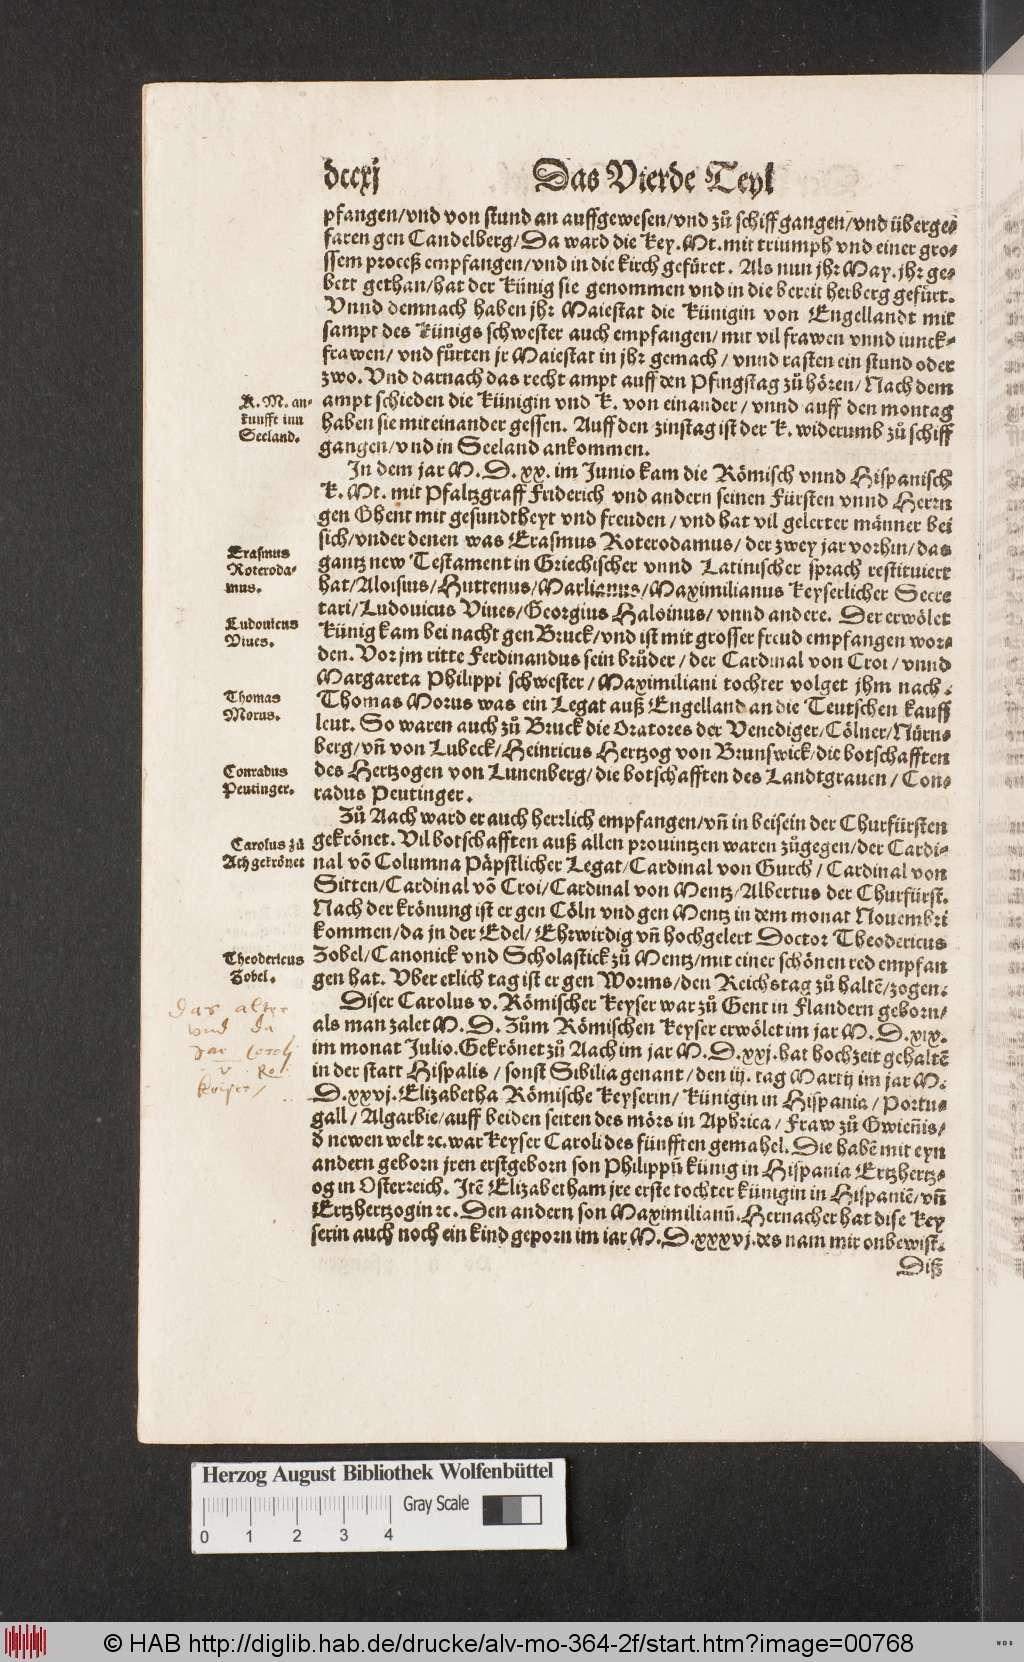 dccxj
Das Vierde Teyl
pfangen/vnd von stund an auffgewesen/vnd zů schiff gangen/vnd überge⸗
faren gen Candelberg/Da ward die key. Mt. mit triumph vnd einer gro⸗
ssem proceß empfangen/vnd in die kirch gefüret. Als nun jhr May. jhr ge⸗
bett gethan/hat der Künig sie genommen vnd in die bereit herberg gefürt.
Vnnd demnach haben jhr Maiestat die Künigin von Engellandt mit
sampt des Künigs schwester auch empfangen/ mit vil frawen vnnd iunck⸗
frawen/ vnd fůrten jr Maiestat in jhr gemach/ vnnd rasten ein stund oder
zwo. Vnd darnach das recht ampt auff den Pfingstag zů hören/ Nach dem
ampt schieden die Künigin vnd K. von einander/ vnnd auff den montag
haben sie miteinander gessen. Auff den zinstag ist der K. widerumb zů schiff
gangen/vnd in Seeland ankommen.
K. M. an⸗
kunfft inn
Seeland.
In dem jar M. D. xx. im Junio kam die Römisch vnnd Hispanisch
K. Mt. mit Pfaltzgraff Friderich vnd andern seinen Fürsten vnnd Herrn
gen Ghent mit gesundtheyt vnd freuden/ vnd hat vil gelerter männer bei
sich/vnder denen was Erasmus Roterodamus/ der zwey jar vorhin/das
gantz new Testament in Griechischer vnnd Latinischer sprach restituiert
hat/Aloisius/Huttenus/Marlianus/Maximilianus Keyserlicher Secre
tari/Ludouicus Viues/Georgius Haloinus/ vnnd andere. Der erwölet
Künig kam bei nacht gen Bruck/vnd ist mit grosser freud empfangen wor⸗
den. Vor jm ritte Ferdinandus sein brůder/ der Cardinal von Croi/ vnnd
Margareta Philippi schwester/Maximiliani tochter volget jhm nach.
Thomas Morus was ein Legat auß Engelland an die Teutschen kauff
leut. So waren auch zů Bruck die Oratores der Venediger/Cölner/Nürn⸗
berg/vñ von Lubeck/Heinricus Hertzog von Brunswick/die botschafften
des Hertzogen von Lunenberg/die botschafften des Landtgrauen/ Con⸗
radus Peutinger.
Erasmus
Roteroda⸗
mus.
Ludouicus
Viues.
Thomas
Morus.
Conradus
Peutinger.
Zů Aach ward er auch herrlich empfangen/vñ in beisein der Churfürsten
gekrönet. Vil botschafften auß allen prouintzen waren zůgegen/der Cardi⸗
nal võ Columna Päpstlicher Legat/Cardinal von Gurch/ Cardinal von
Sitten/Cardinal võ Croi/Cardinal von Mentz/Albertus der Churfürst.
Nach der krönung ist er gen Cöln vnd gen Mentz in dem monat Nouembri
kommen/da jn der Edel/ Ehrwirdig vñ hochgelert Doctor Theodericus
Zobel/Canonick vnd Scholastick zů Mentz/mit einer schönen red empfan
gen hat. Vber etlich tag ist er gen Worms/den Reichstag zů haltẽ/zogen.
Carolus zů
Ach gekrönet
Theodericus
Zobel.
Diser Carolus v. Römischer Keyser war zů Gent in Flandern geborn/
als man zalet M. D. Zům Römischen Keyser erwölet im jar M. D. xix.
im monat Julio. Gekrönet zů Aach im jar M. D. xxj. hat hochzeit gehaltẽ
in der statt Hispalis/ sonst Sibilia genant/den iij. tag Martij im jar M.
D. xxvj. Elizabetha Römische Keyserin/ Künigin in Hispania/ Portu⸗
gall/ Algarbie/auff beiden seiten des mörs in Aphrica/ Fraw zů Gwieñis/
d newen welt ꝛc. war Keyser Caroli des fünfften gemahel. Die habẽ mit eyn
andern geborn jren erstgeborn son Philippũ künig in Hispania Ertzhertz⸗
og in Osterreich. Jtẽ Elizabetham jre erste tochter künigin in Hispaniẽ/vñ
Ertzhertzogin ꝛc. Den andern son Maximilianũ. Hernacher hat dise Key
serin auch noch ein kind geporn im iar M. D. xxxvj. des nam mir onbewist.
Diß
das alter
vnd da
Jar Caroli
v Ro.
Keyser/
Herzog August Bibliothek Wolfenbüttel
0 1 2 3 4
Gray Scale
© HAB http://diglib.hab.de/drucke/alv-mo-364-2f/start.htm?image=00768